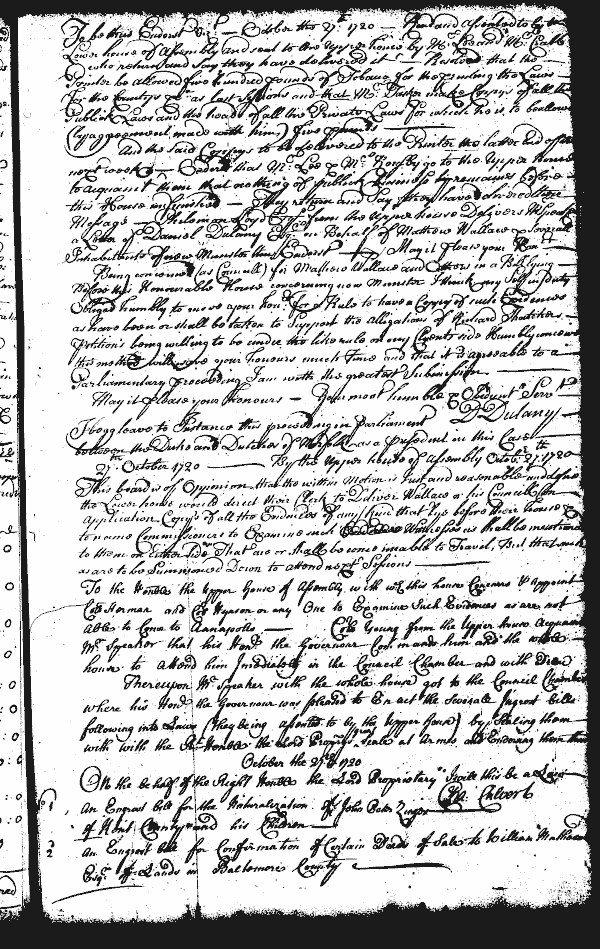 To be thus Endorst Viz.t — October the 27th 1720 — Read and assented to by the
Lower house of Assembly and sent to the Upper house by Mr and Mr
who return and say they have delivered it — Resolved that the
Printer be allowed five hundred pounds of Tobacco for the printing the Laws
for the Countys as last Sessions and that Mr make Copys of all the
Publick Laws and the heads of all the Private Laws for which he is to be allowed
(by agreement made with him) five
And the said Copys to be delivered to the Printer the latter end of
next week — Ordered that Mr Lee & Mr go to the Upper house
to acquaint them that nothing of publick business remaines before
this House unfinished — They return and say they have delivered their
Message — Philemon Lloyd Esqr from the upper house Delivers Mr Speaker
a Letter of Daniel Dulany Esqr on Behalf of Mathew Wallace & Severall
Inhabitants of new Munster thus Endorst — May it please your Honrs
Being concerned (as Councill) for Mathew Wallace and others in a Bill
Before this Honourable House concerning new Munster I think my self in duty
obliged humbly to move your Honrs for a Rule to have a Copy of such Evidences
as have been or shall be taken to Support the allegations of Richard
Petition being willing to be under the like rule on my Clients side Humbly conceive
this method will save your honours much time and that it is agreeable to a
Parliamentary proceeding I am with the greatest Submission
May it please your Honours — Your most humble & Obedient Servt
D: Dulany
I begg leave to Instance this proceeding in Parliament
between the Duke and Dutches of Norfolk as a president in this Case
27th October 1720 — By the Upper house of Assembly Octobr 27th 1720
This board is of Oppinion that the within Motion is Just and reasonable and desires
the Lower house would direct their Clerk to Deliver Wallace or his Councill upon
Application Copys of all the Evidences of any kind that lye before their house &
to name Commissioners to Examine such Witnesses as shall be mentioned
to them on Either side That are or shall be some unable to Travel, But that such
as are to be Summoned Down to attend next Sessions
To the Honble the Upper House of Assembly, with wch this house Concurrs & appoint
Coll Herman and Coll Hynson or any One to Examine Such Evidences as are not
Able to Come to Annapolis — Coll Young from the Upper house Acquaints
Mr Speaker that his Honr the Governour Commands him and the whole
house to attend him Imediately in the Council Chamber and with Dien
Thereupon Mr Speaker with the whole house got to the Council Chamber
where his Honr the Governour was pleased to Enact the Severall Ingrost bills
following into Laws (they being assented to by the Upper house) by Sealing them
with the Rt Honble the Lord Propryrs Seale at Armes and Endorsing them thus
October the 27th 1720
On the behalf of the Right Honble the Lord Proprietary I will this be a Law
Cha. Calvert
1 An Engrost bill for the Naturalization of John Peter Zenger
of Kent County and his Children
2 An Engrost bill for Confirmation of Certain Deeds of Sale to William
Esqr of Lands in Baltemore County